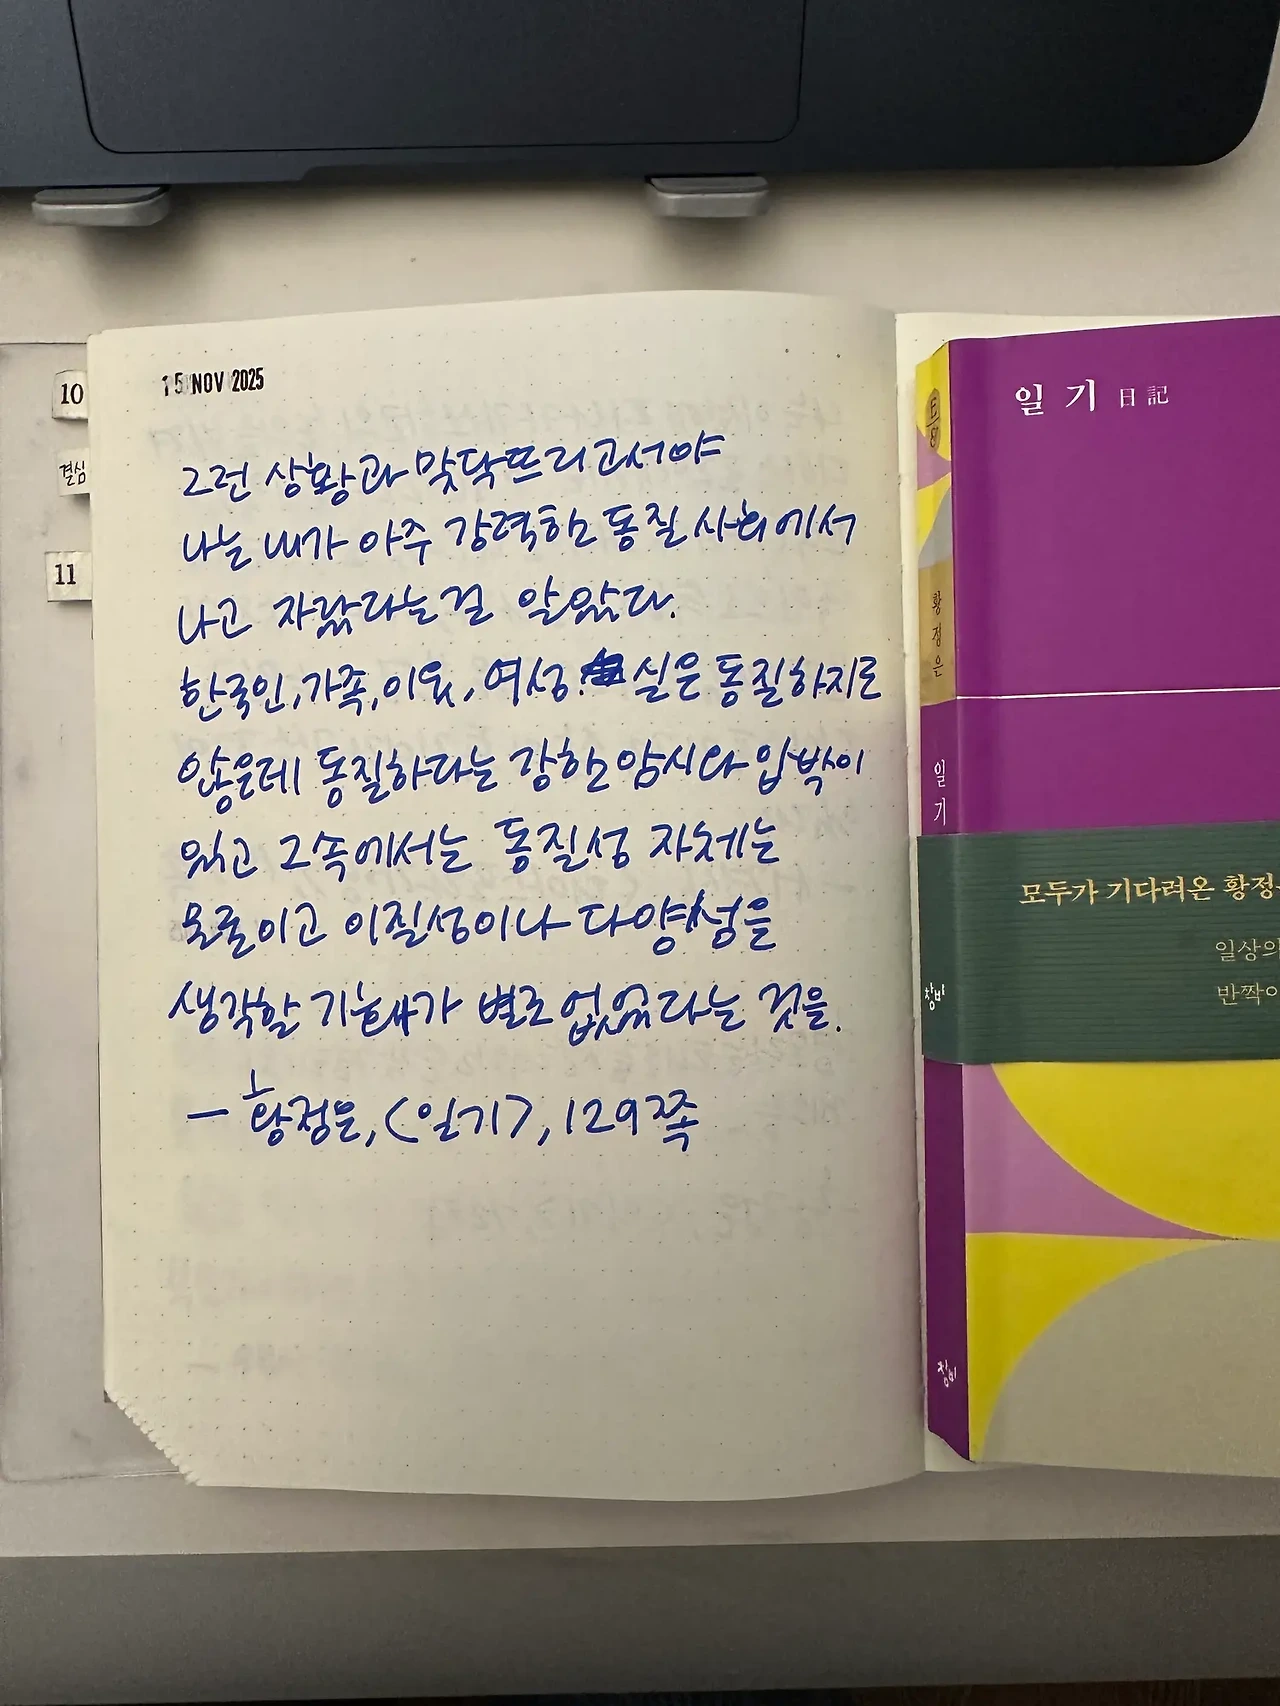 15 NOV 2025
10
결심
11
그런 상황과 맞닥뜨리고서야
나는 내가 아주 강력한 동질 사회에서
나고 자랐다는 걸 알았다.
한국인, 가족, 이웃, 여성. 실은 동질하지도
않은데 동질하다는 강한 암시와 압박이
있고 그 속에서는 동질성 자체는
모호이고 이질성이나 다양성을
생각할 기회가 별로 없었다는 것을.
— 황정은, <일기>, 129쪽
일기 日記
황정은
일기
창비
모두가 기다려온 황정
일상의
반짝이
창비